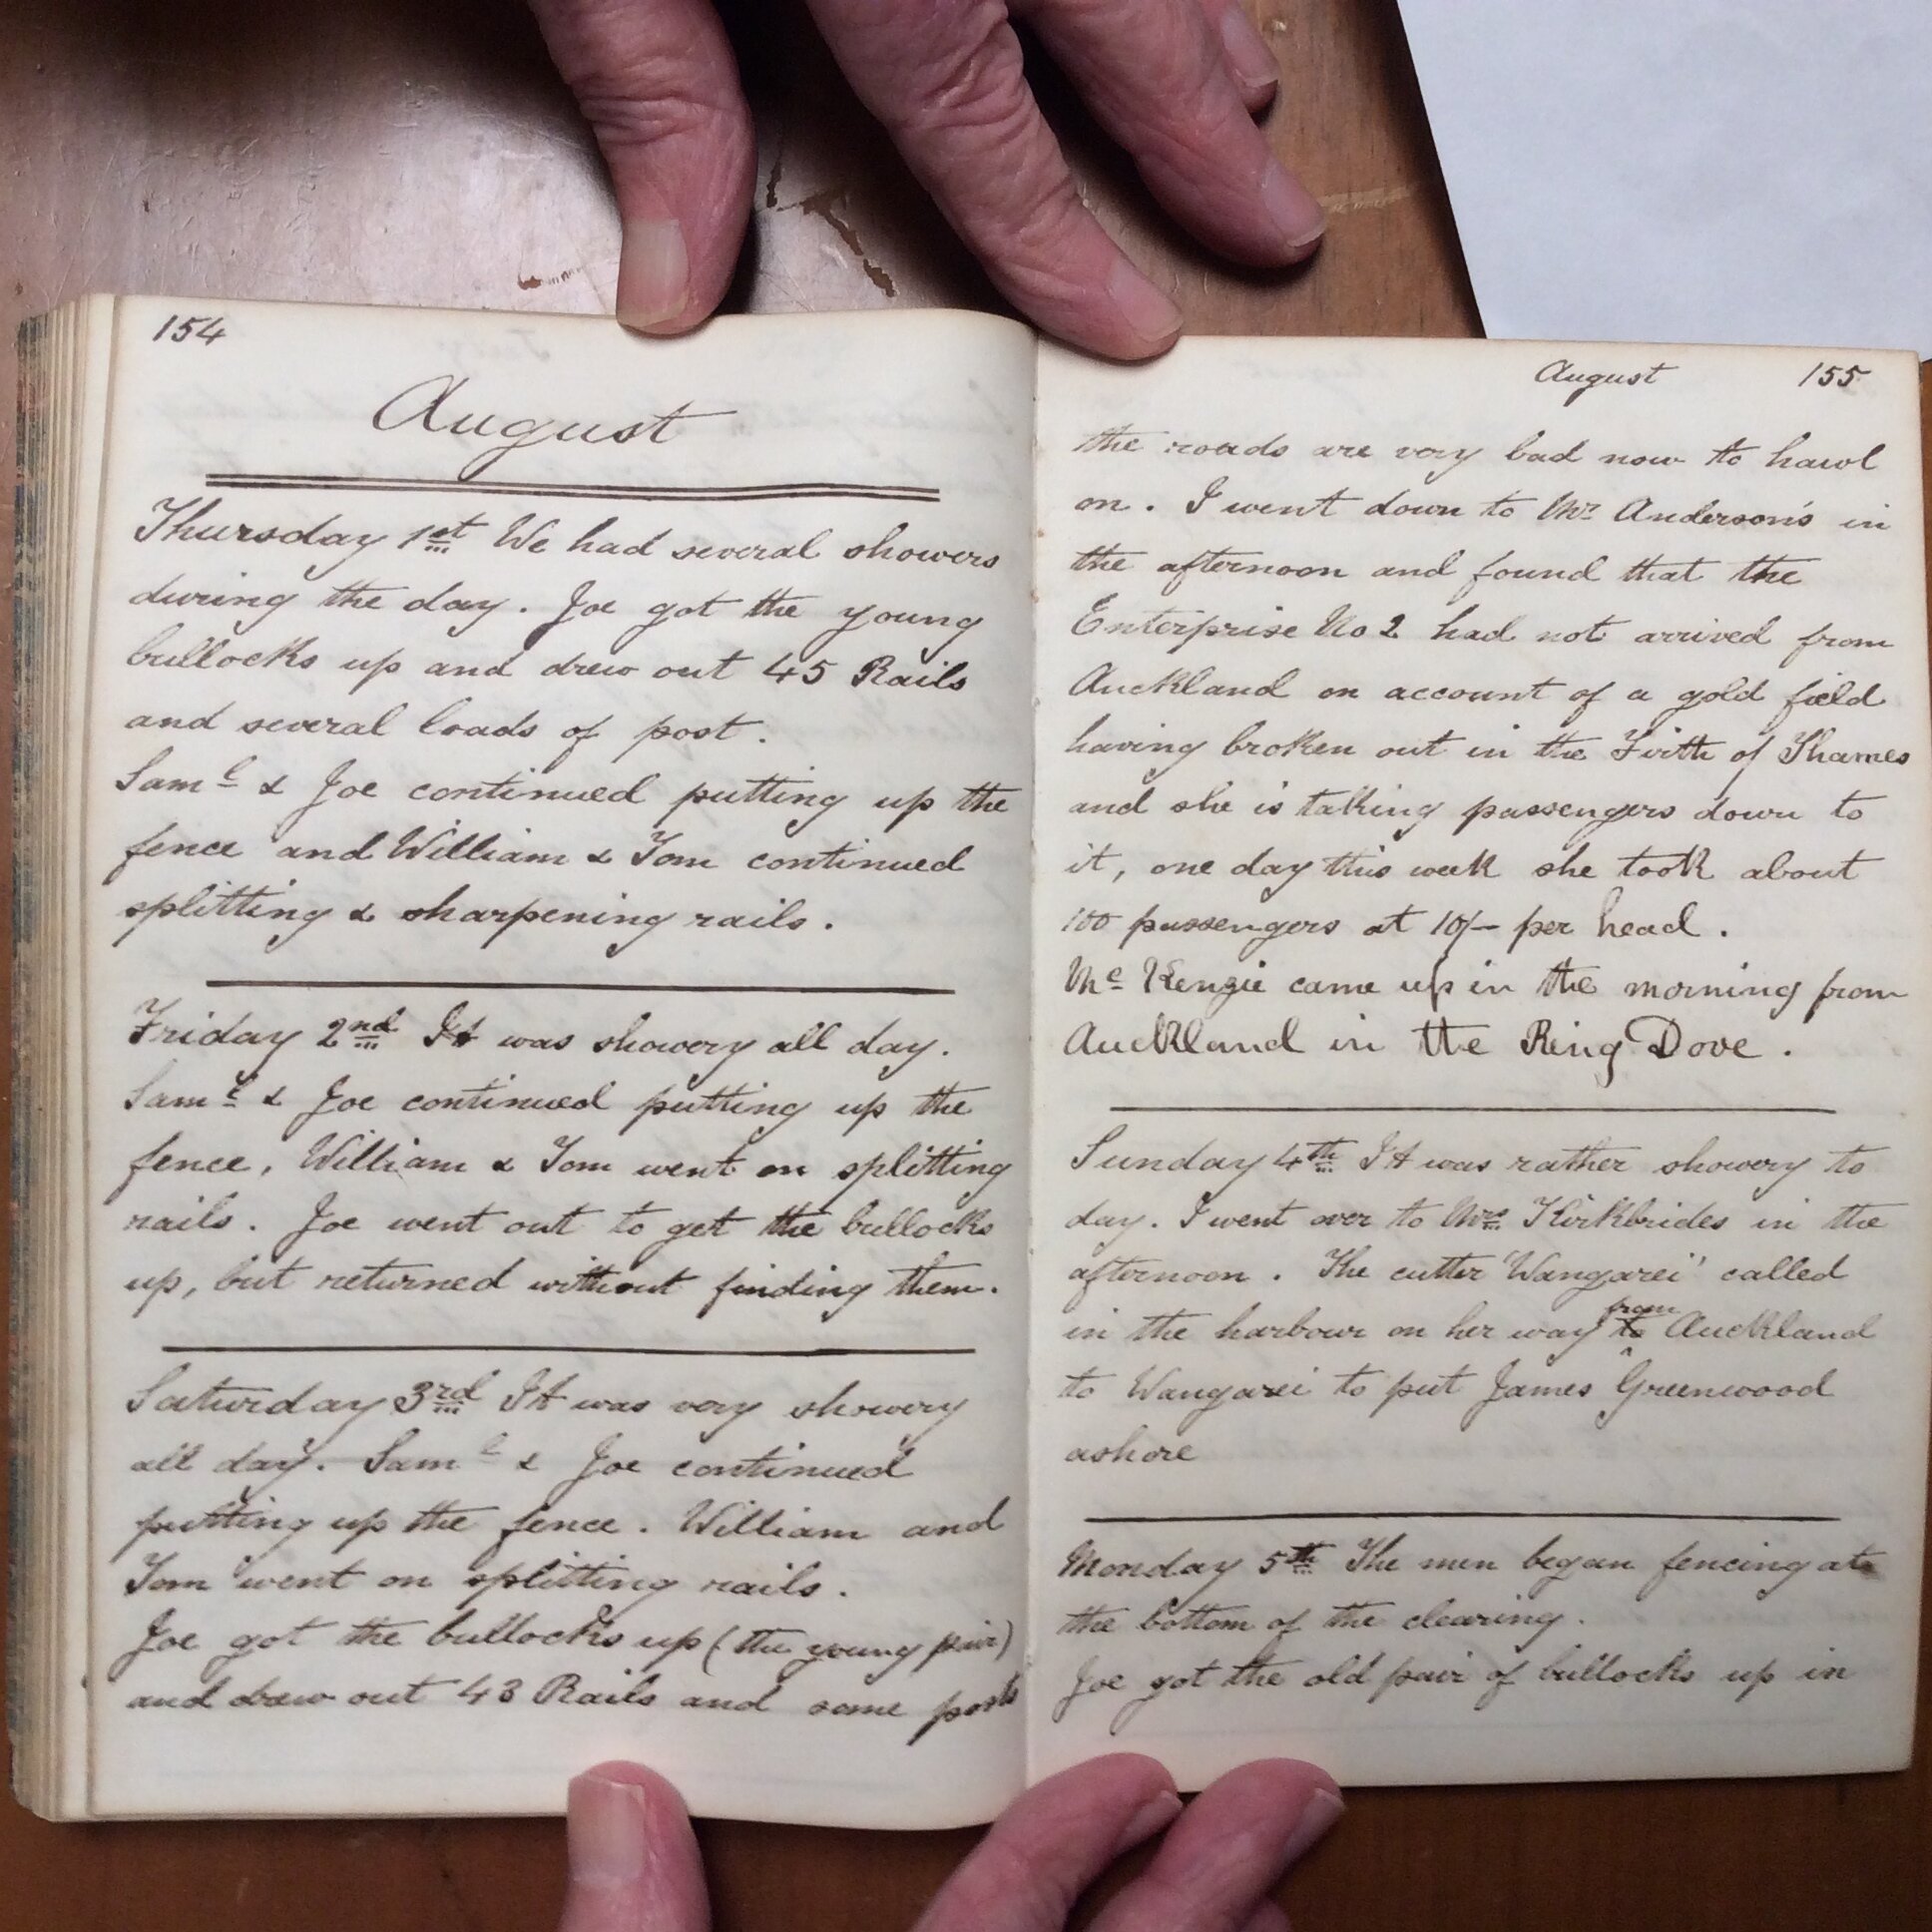 154
August
Thursday 1st We had several showers
during the day. Joe got the young
bullocks up and drew out 45 Rails
and several loads of post.
Saml & Joe continued putting up the
fence and William & Tom continued
splitting & sharpening rails.
Friday 2nd It was showery all day.
Saml & Joe continued putting up the
fence, William & Tom went on splitting
rails. Joe went out to get the bullocks
up, but returned without finding them.
Saturday 3rd It was very showery
all day. Saml & Joe continued
putting up the fence. William and
Tom went on splitting rails.
Joe got the bullocks up (the young pair)
and drew out 43 Rails and some posts
August 155
the roads are very bad now to hawl
on. I went down to Mr Anderson's in
the afternoon and found that the
Enterprise No 2 had not arrived from
Auckland on account of a gold field
having broken out in the Firth of Thames
and she is taking passengers down to
it, one day this week she took about
100 passengers at 10/- per head.
Mc Kenzie came up in the morning from
Auckland in the Ring Dove.
Sunday 4th It was rather showery to
day. I went over to Mrs Kirkbrides in the
afternoon. The cutter "Wangarei" called
in the harbour on her way to from Auckland
to Wangarei to put James Greenwood
ashore
Monday 5th The men began fencing at
the bottom of the clearing.
Joe got the old pair of bullocks up in